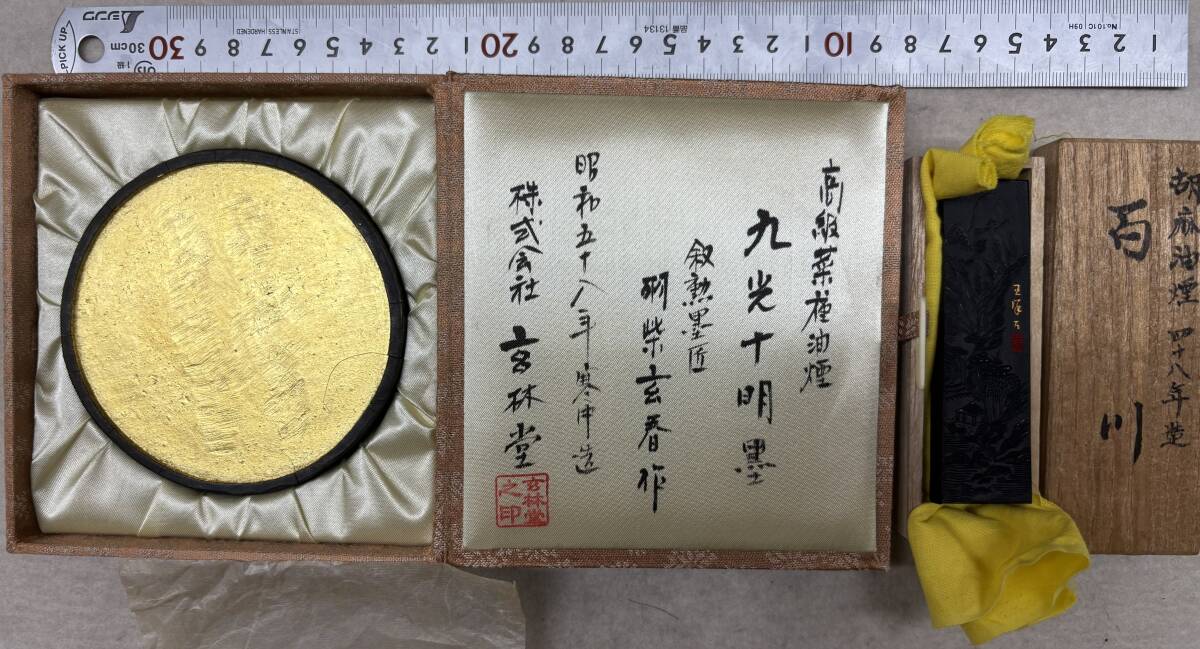 高級菜種油煙
九光十明墨
叙勲墨匠
硎柴玄春作
昭和五十八年寒中造
株式会社 玄林堂
玄林堂之印
胡麻油煙 四十八年造
百川
PICK UP
シンワ
30cm
1級
STAINLESS HARDENED
品番 13134
No.101C 09H
30 9 8 7 6 5 4 3 2 1 20 9 8 7 6 5 4 3 2 1 10 9 8 7 6 5 4 3 2 1